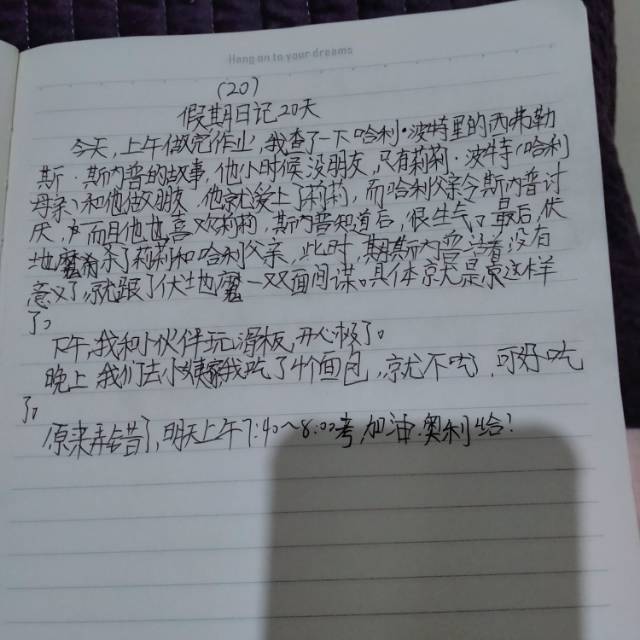 Hang on to your dreams
(20)
假期日记20天
今天,上午做完作业,我查了一下哈利·波特里的西弗勒
斯·斯内普的故事,他小时候没朋友,只有莉莉·波特(哈利
母亲)和他做朋友,他就爱上了莉莉,而哈利父亲令斯内普讨
厌,而且他也喜欢莉莉,斯内普知道后,很生气,最后,伏
地魔杀了莉莉和哈利父亲,此时,斯内普活着没有
意义了,就跟了伏地魔一双面间谍。具体就是这样
了。
下午,我和小伙伴玩滑板,开心极了。
晚上,我们去小姨家我吃了4个面包,就不吃,可好吃
了。
原来弄错了,明天上午7:40~8:00考 加油.奥利给!